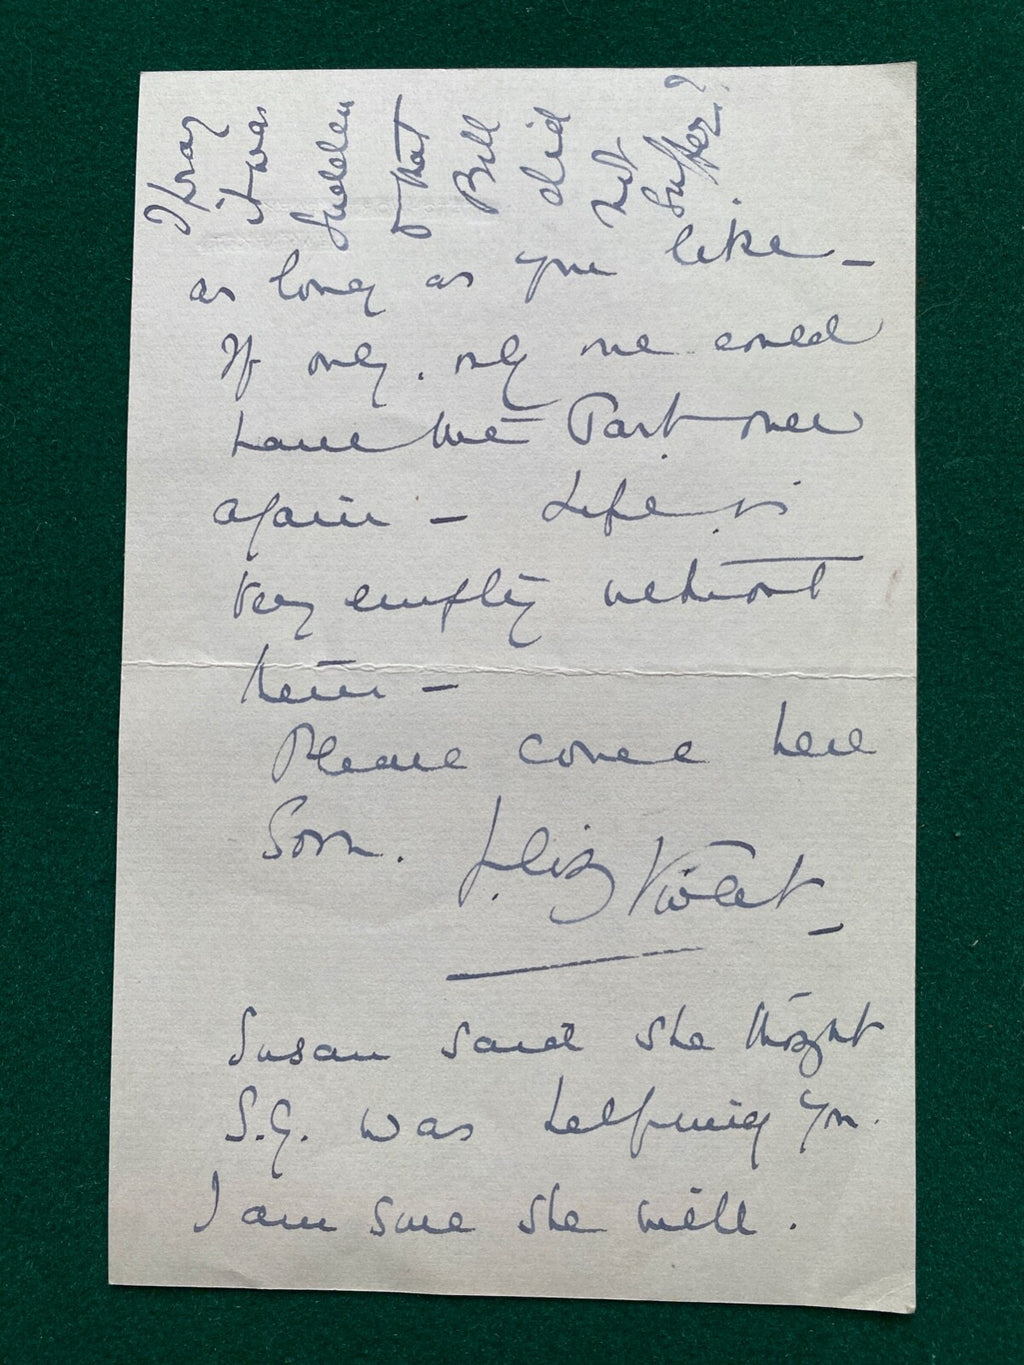 I pray
it was
sudden
& that
Bill
did
not
suffer?
as long as you like –
If only. only one could
have the Past over
again – Life is
very empty without
them –
Please come here
Soon. Violet –
Susan said she thought
S.G. was helping you.
I am sure she will.